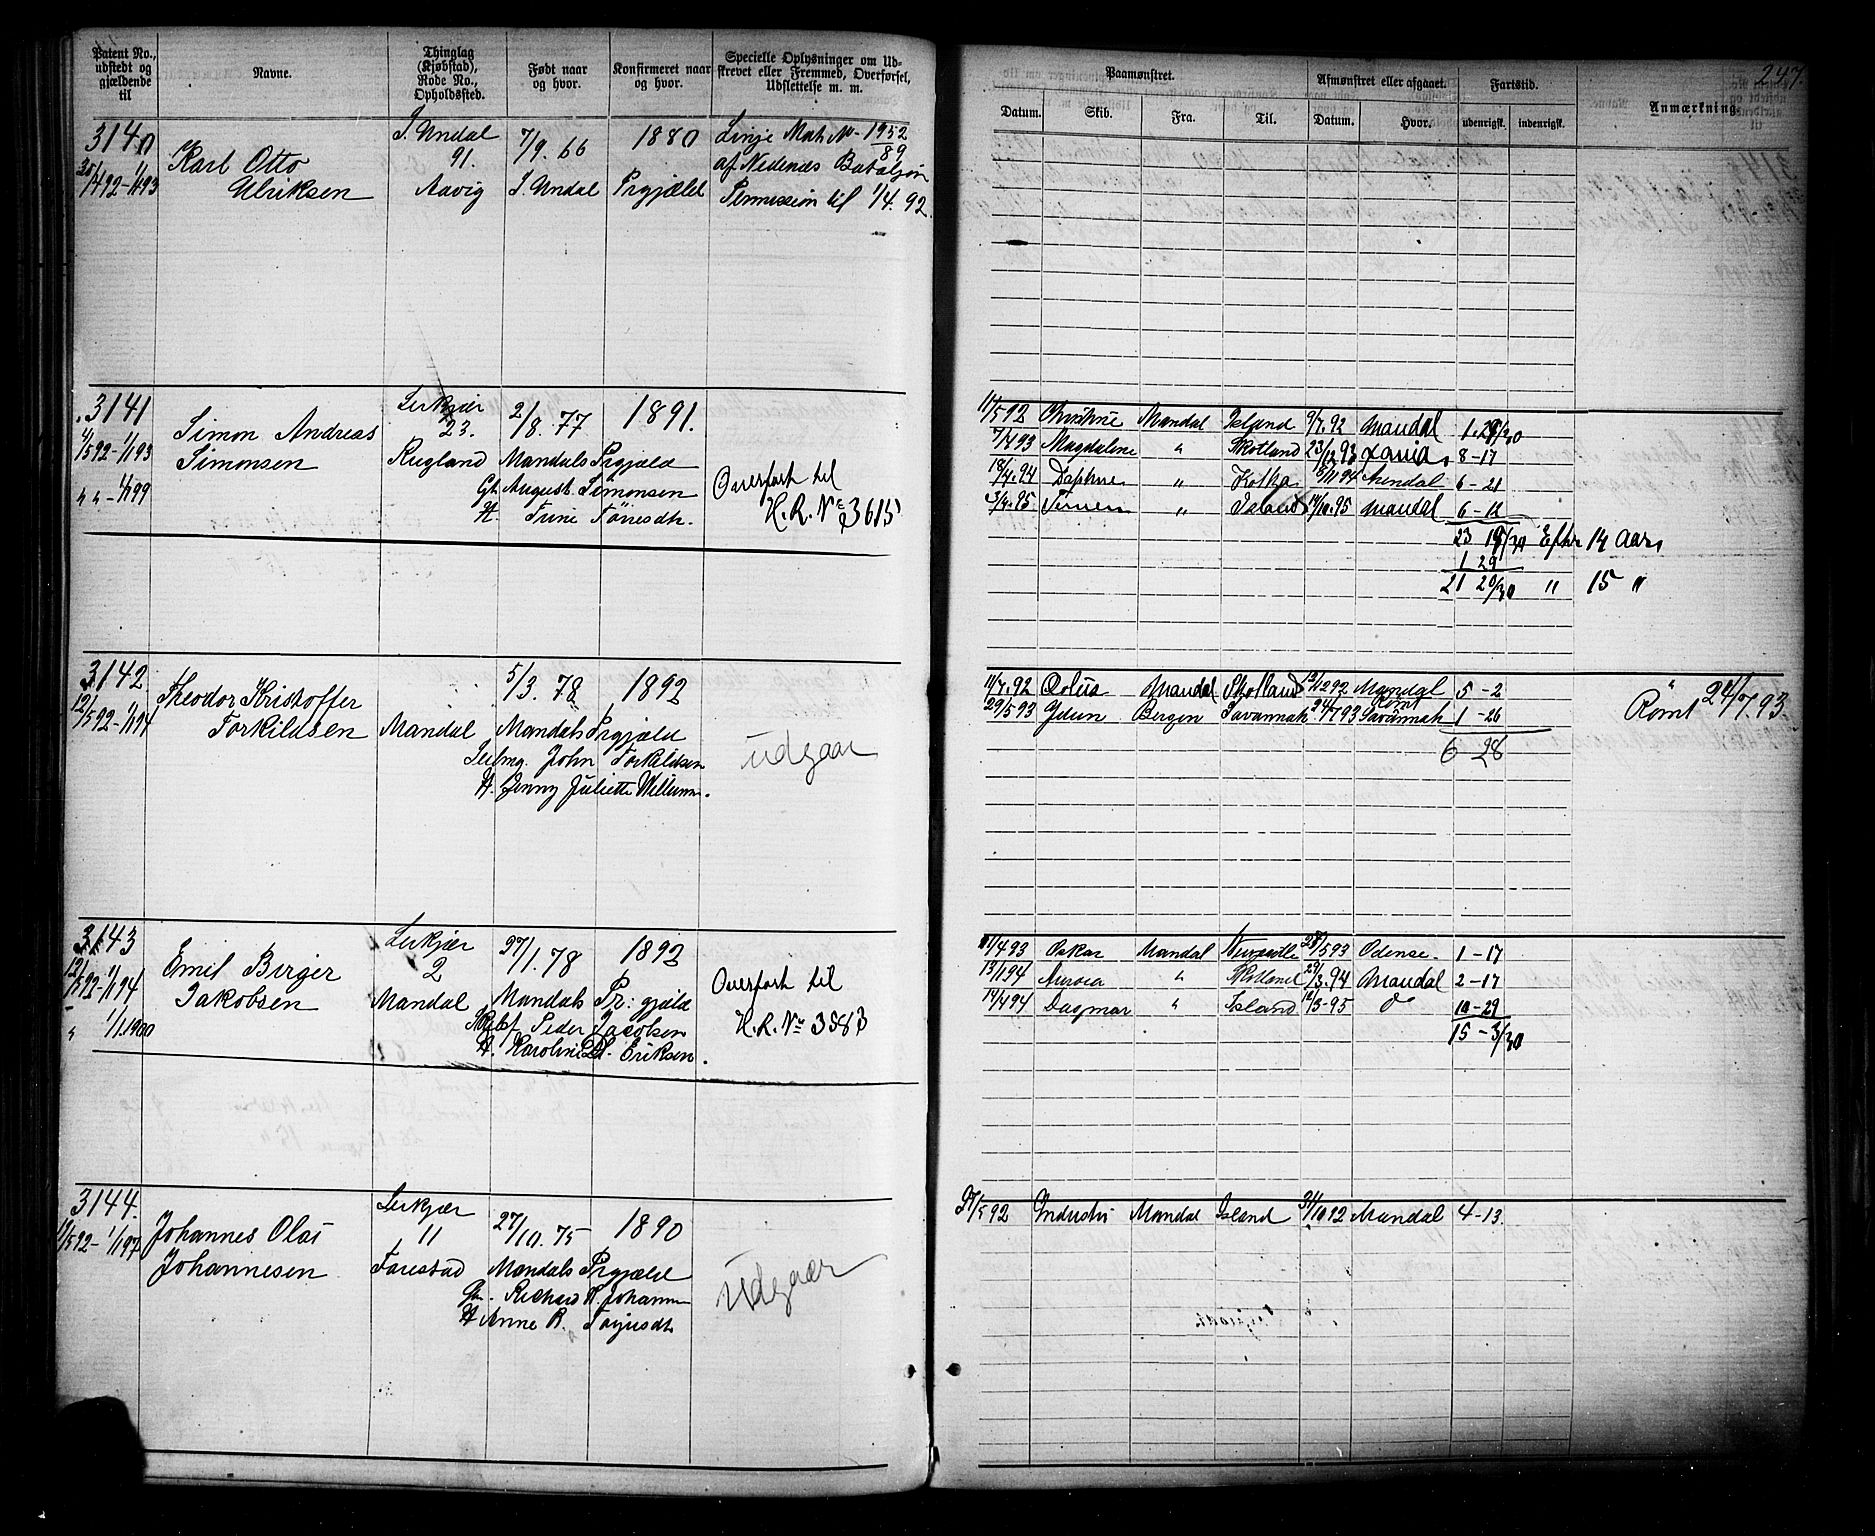 247.
Patent No., udstedt og gjældende til
Navne.
Thinglag (Kjøbstad), Rode No., Opholdssted.
Født naar og hvor.
Konfirmeret naar og hvor.
Specielle Oplysninger om Udskrevet eller Fremmed, Overførsel, Udslettelse m. m.
Paamønstret.
Afmønstret eller afgaaet.
Fartstid.
Anmærkning.
Datum. Skib. Fra. Til. Datum. Hvor. udenrigsk. indenrigsk.
3140 S. Undal 7/9. 66 1880 Linje Mat. No 1952/89
Karl Otto 91. af Nedenæs Bataljon
Ulriksen Aavig S. Undal Prgjæld Permission til 1/4. 92.
3141 2/8. 77 1891.
Simon Andreas 23.
4/5 92 - 1/1 93 Simonsen Mandals Prgjæld
" " - 1/1 99 August Simonsen Overført til
H. Trine H.R. No 3615
11/5 92 Mandal Island 9/7. 92 Mandal
7/4 93 Magdalene " Skotland 23/12 93 8-17
18/4. 94 Daphne " Kotka 6-21
3/4. 95 " Island 14/10. 95 Mandal 6-12
Efter 14 Aar
1 29
21 20/30 " 15 "
3142 5/3. 78 1892
Theodor Kristoffer
12/5 92 - 1/1 94 Torkildsen Mandal Mandals Prgjæld
John Torkildsen udgaar
H. Jenny Juliette
11/7. 92 Æolus Mandal Skotland 13/12 92 Mandal 5-2
29/5 93 Idun Bergen Savannah 24/7 93 Rømt Savannah 1-26 Rømt 24/7. 93.
6 28
3143 27/1. 78 1892
Emil Birger 2
12/5 92 - 1/1 94 Jakobsen Mandal Mandals Pr: gjæld Overført til
" 1/1 1900 Peder Jacobsen H.R. No 3583
H. Karoline Eriksen.
11/4 93 Oskar Mandal 28/5 93 Odense. 1-17
13/1 94 Aurora " Skotland 29/3. 94 Mandal 2-17
14/4 94 Dagmar " Island 12/3-95 do 10-29
15 - 3/30
3144. 27/10. 75 1890
Johannes Olai 11
11/5 92 - 1/1 97 Johannesen Farestad Mandals Prgjæld
Richard udgaar
H Anne
27/5 92 Industri Mandal Island Mandal 4-13.